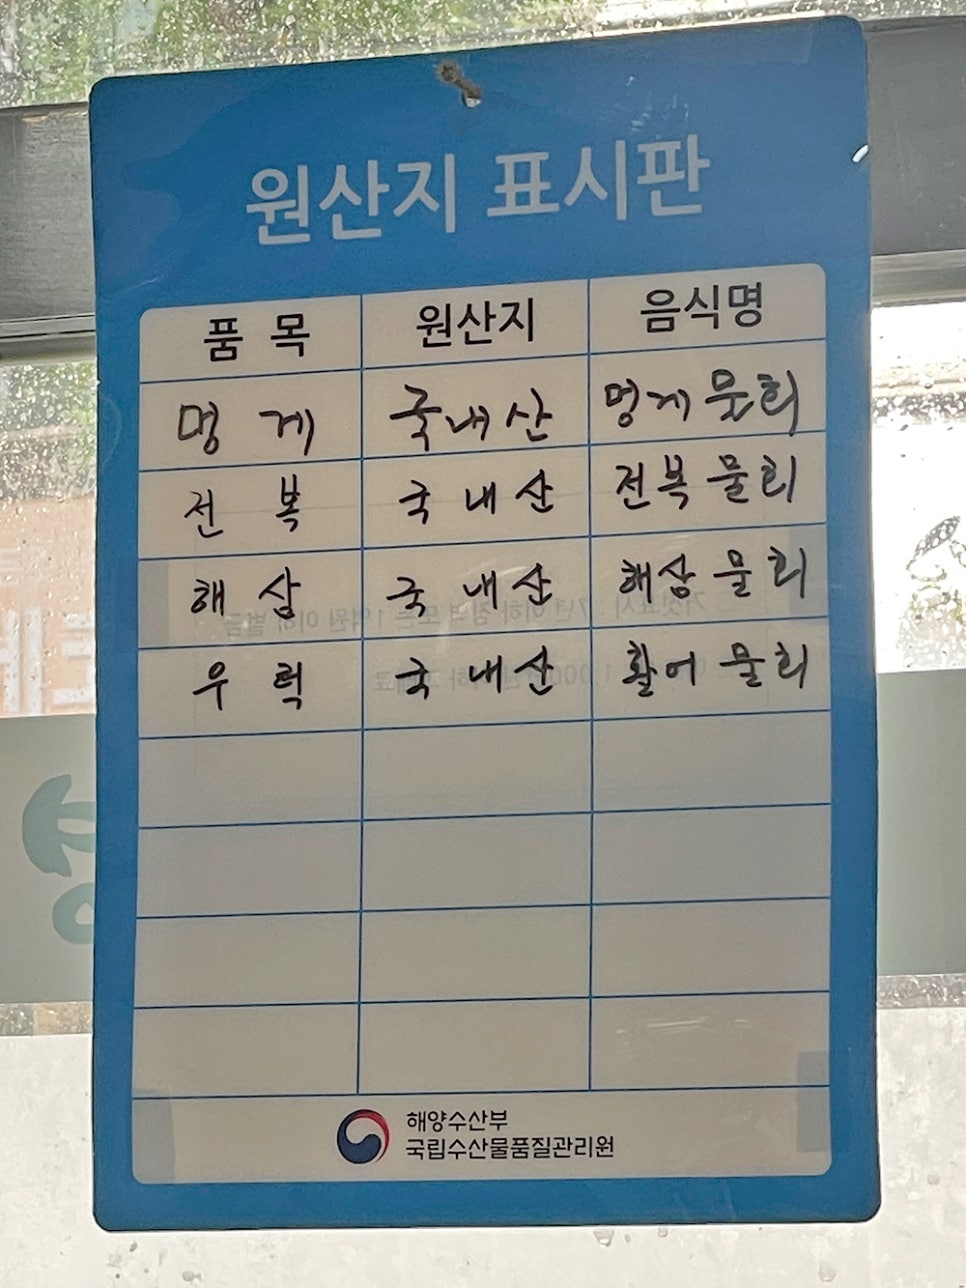 원산지 표시판
품 목 원산지 음식명
멍 게 국내산 멍게물회
전 복 국내산 전복물회
해 삼 국내산 해삼물회
우 럭 국내산 활어물회
해양수산부
국립수산물품질관리원